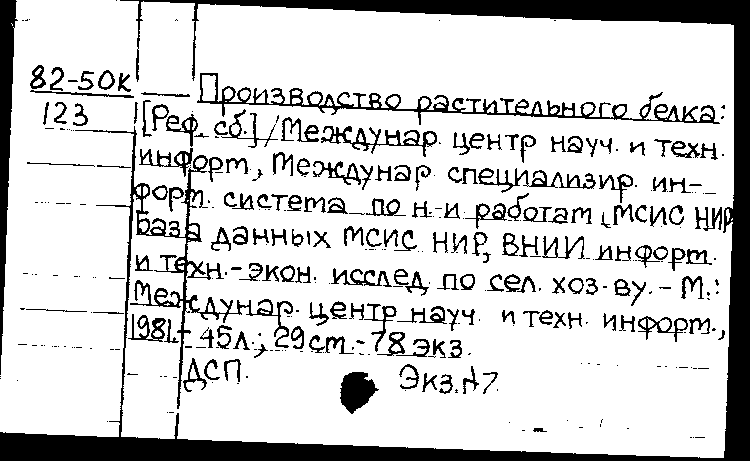 82-50К Производство растительного белка:
123 [Реф. сб.] / Междунар. центр науч. и техн.
информ., Междунар. специализир. ин-
форм. система по н.-и. работам (МСИС НИР
База данных МСИС НИР, ВНИИ информ.
и техн.-экон. исслед. по сел. хоз-ву. - М.:
Междунар. центр науч. и техн. информ.,
1981. - 45л.; 29см. - 78 экз.
ДСП. Экз.